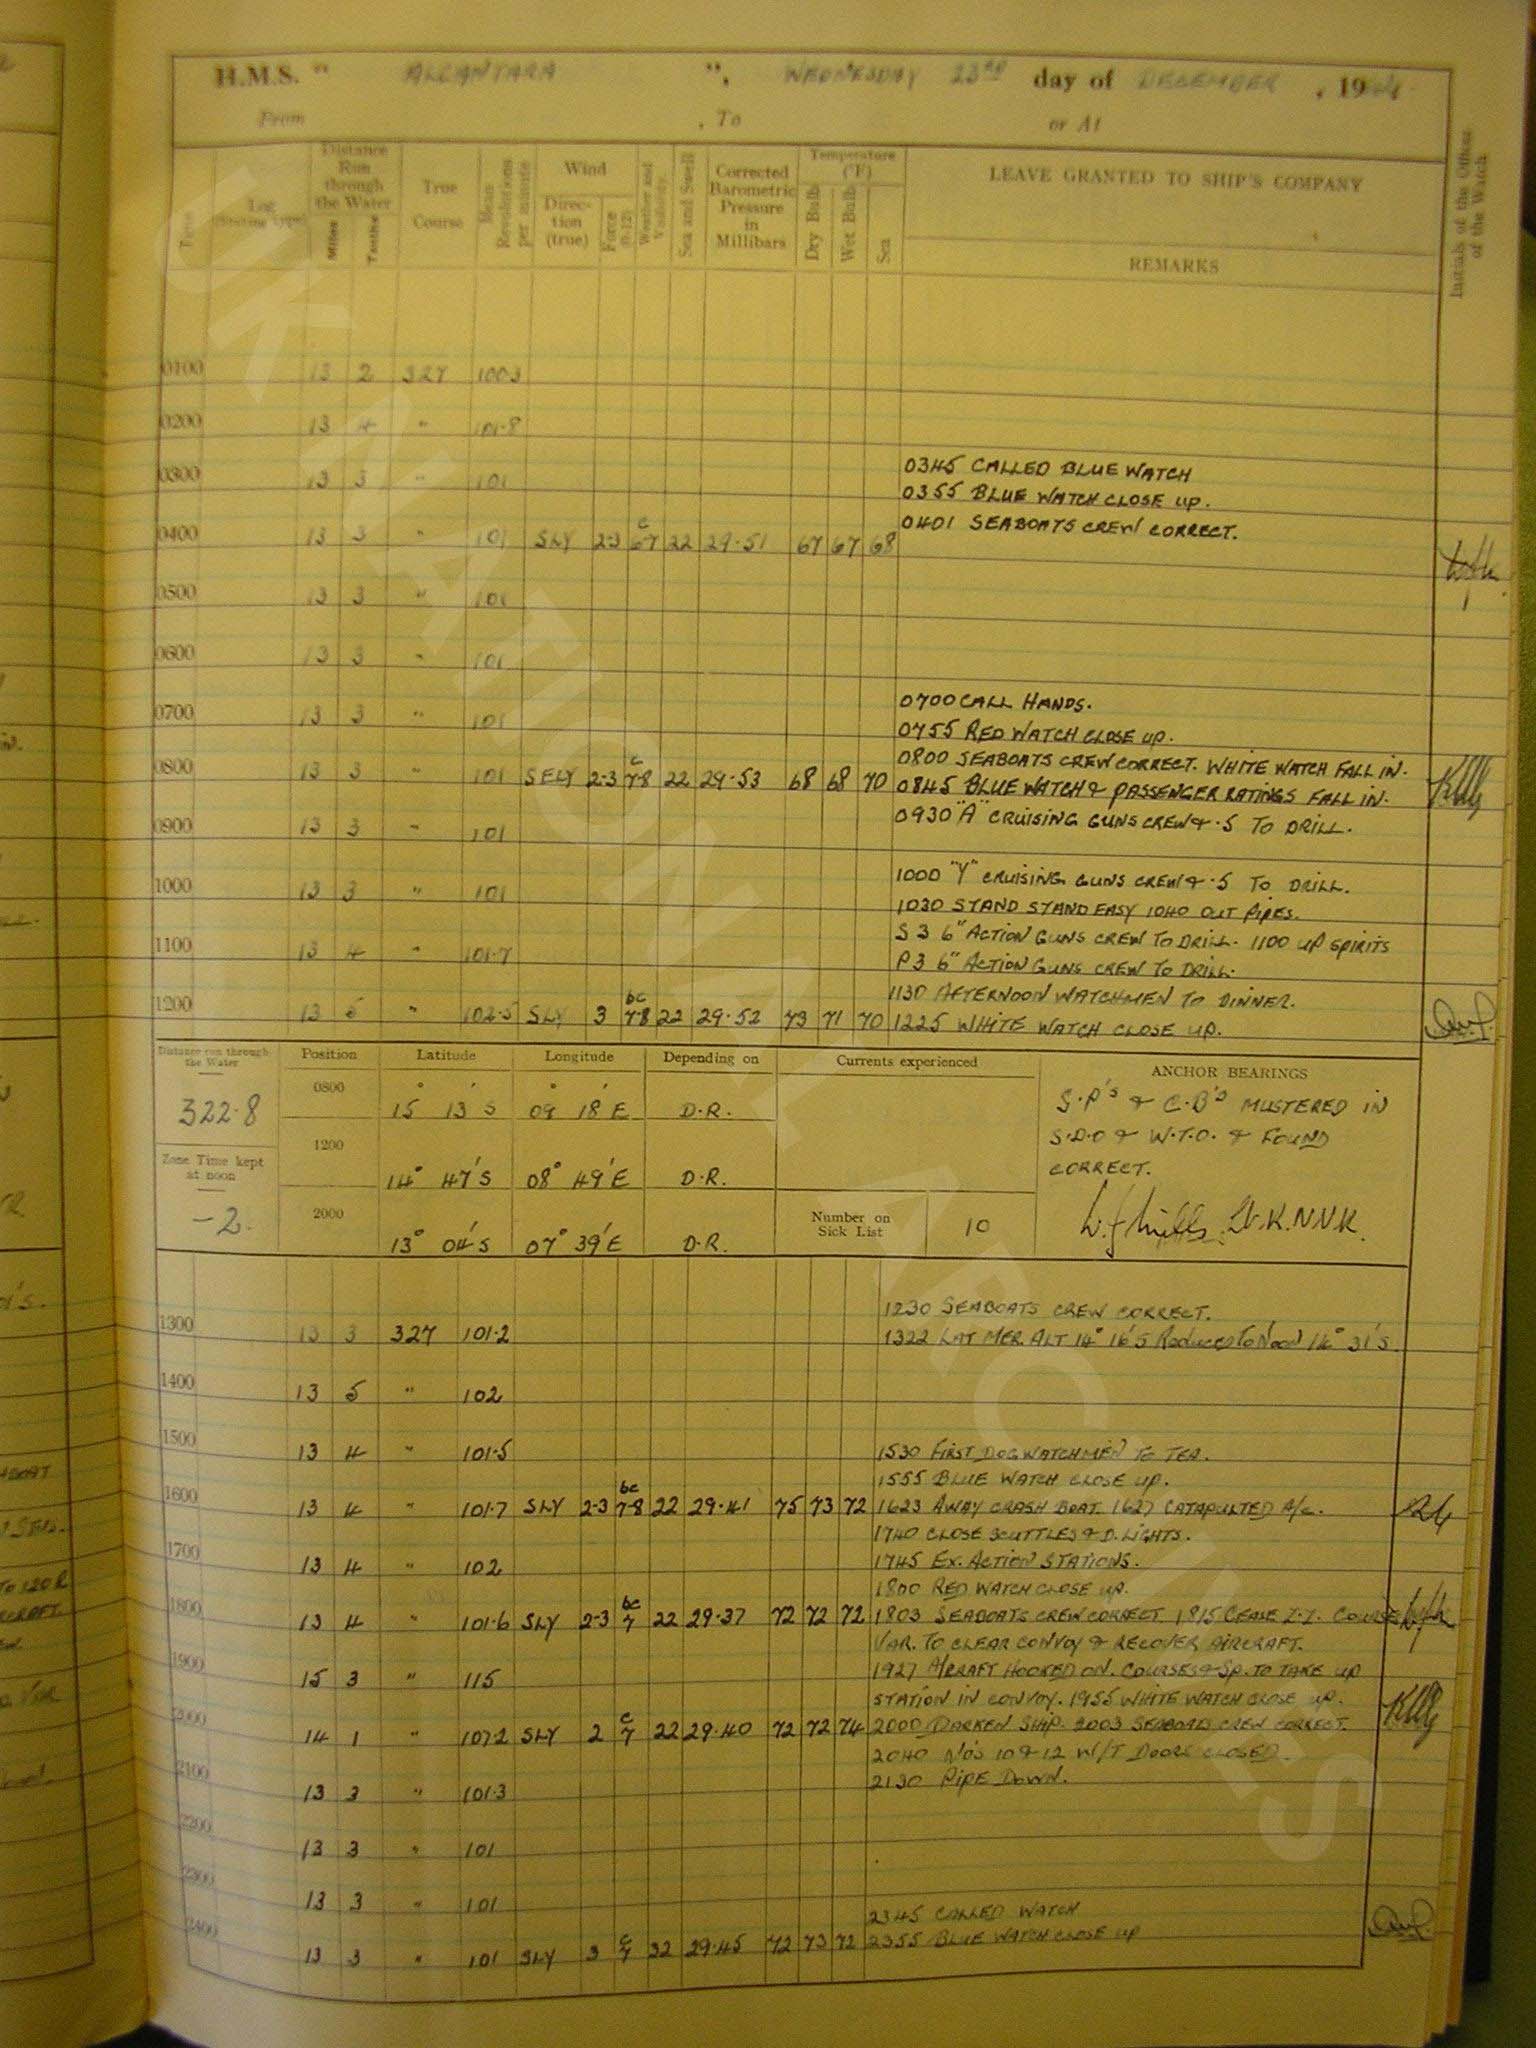 H.M.S. " ALCANTARA ", WEDNESDAY 23RD day of DECEMBER, 19
From , To or At
Time
Log
Distance Run through the Water
Miles
Tenths
True Course
Mean Revolutions per minute
Wind
Direction (true)
Force (0-12)
Weather and Visibility
Sea and Swell
Corrected Barometric Pressure in Millibars
Temperature (°F)
Dry Bulb
Wet Bulb
Sea
LEAVE GRANTED TO SHIP'S COMPANY
REMARKS
Initials of the Officer of the Watch
0100 13 2 327 100.3
0200 13 4 " 101.8
0300 13 3 " 101
0345 CALLED BLUE WATCH
0355 BLUE WATCH CLOSE UP.
0401 SEABOATS CREW CORRECT.
0400 13 3 " 101 SLY 2-3 c 6-7 22 29.51 67 67 68
0500 13 3 " 101
0600 13 3 " 101
0700 13 3 " 101
0700 CALL HANDS.
0755 RED WATCH CLOSE UP.
0800 SEABOATS CREW CORRECT. WHITE WATCH FALL IN.
0800 13 3 " 101 SELY 2-3 c 7-8 22 29.53 68 68 70 0845 BLUE WATCH & PASSENGER RATINGS FALL IN.
0900 13 3 " 101
0930 "A" CRUISING GUNS CREW & .5 TO DRILL.
1000 13 3 " 101
1000 "Y" CRUISING GUNS CREW & .5 TO DRILL.
1030 STAND STAND EASY 1040 OUT PIPES.
S 3 6" ACTION GUNS CREW TO DRILL. 1100 UP SPIRITS
1100 13 4 " 101.7
P3 6" ACTION GUNS CREW TO DRILL.
1130 AFTERNOON WATCHMEN TO DINNER.
1200 13 5 " 102.5 SLY 3 bc 7-8 22 29.52 73 71 70 1225 WHITE WATCH CLOSE UP.
Distance run through the Water
322.8
Zone Time kept at noon
-2.
Position Latitude Longitude Depending on Currents experienced ANCHOR BEARINGS
0800 15° 13' S 09° 18' E D.R.
1200 14° 47' S 08° 49' E D.R.
2000 13° 04' S 07° 39' E D.R.
Number on Sick List 10
S.P's & C.B's MUSTERED IN
S.D.O & W.T.O. & FOUND
CORRECT.
1230 SEABOATS CREW CORRECT.
1300 13 3 327 101.2 1322 LAT MER. ALT 14° 16' S Reduced to Noon 14° 31' S.
1400 13 5 " 102
1500 13 4 " 101.5 1530 FIRST DOG WATCHMEN TO TEA.
1555 BLUE WATCH CLOSE UP.
1600 13 4 " 101.7 SLY 2-3 bc 7-8 22 29.41 75 73 72 1623 AWAY CRASH BOAT. 1627 CATAPULTED A/C.
1740 CLOSE SCUTTLES & D. LIGHTS.
1700 13 4 " 102 1745 EX. ACTION STATIONS.
1800 RED WATCH CLOSE UP.
1800 13 4 " 101.6 SLY 2-3 bc 7 22 29.37 72 72 72 1803 SEABOATS CREW CORRECT 1815 CEASE Z.Z. COURSE
VAR. TO CLEAR CONVOY & RECOVER AIRCRAFT.
1900 15 3 " 115 1927 A/CRAFT HOOKED ON. COURSES & SP. TO TAKE UP
STATION IN CONVOY. 1955 WHITE WATCH CLOSE UP.
2000 14 1 " 107.2 SLY 2 c 7 22 29.40 72 72 74 2000 DARKEN SHIP. 2003 SEABOATS CREW CORRECT.
2040 No's 10 & 12 W/T DOORS CLOSED.
2100 13 3 " 101.3 2130 PIPE DOWN.
2200 13 3 " 101
2300 13 3 " 101
2345 CALLED WATCH
2400 13 3 " 101 SLY 3 c 7 32 29.45 72 73 72 2355 BLUE WATCH CLOSE UP